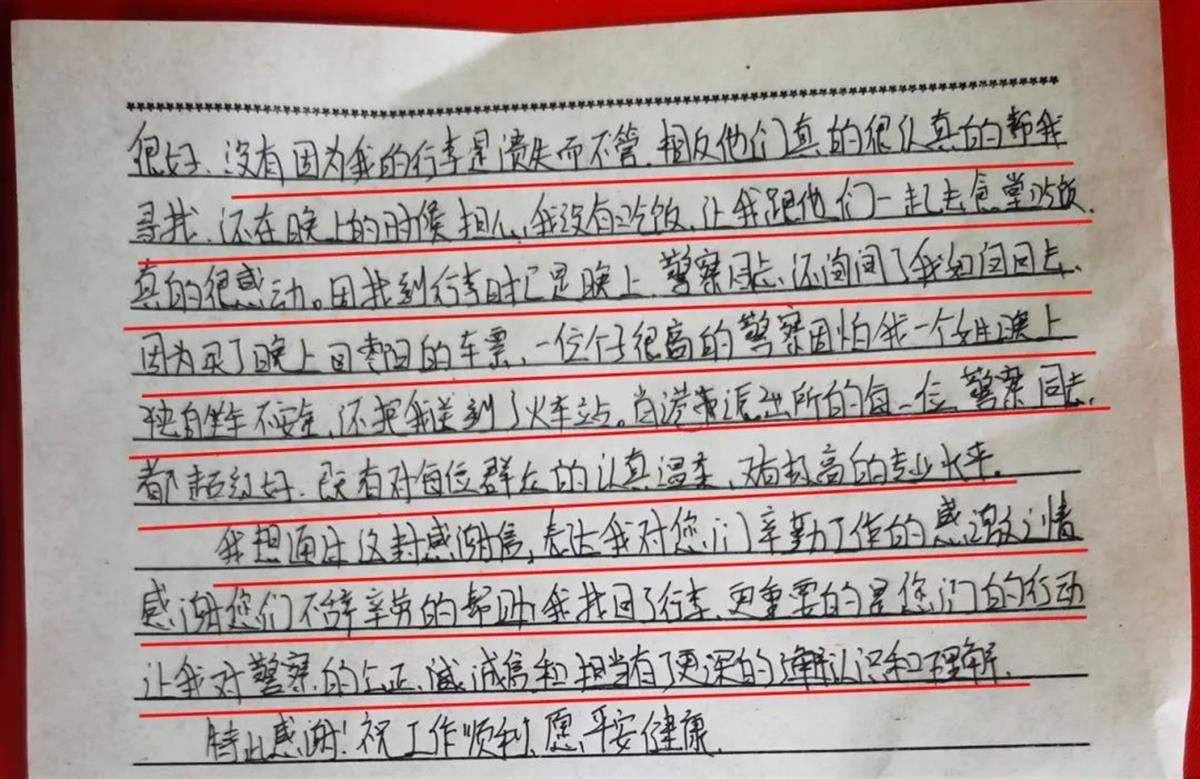 很好、没有因为我的行李是遗失而不管、相反他们真的很认真的帮我
寻找、还在晚上的时候担心我没有吃饭、让我跟他们一起去食堂吃饭、
真的很感动。因找到行李时已是晚上、警察同志、还询问了我如何回去、
因为买了晚上回枣阳的车票、一位个子很高的警察因怕我一个女生晚上
独自坐车不安全、还把我送到了火车站。肖港派出所的每一位警察同志、
都超级好、既有对每位群众的认真温柔、又有极高的专业水平、
我想通过这封感谢信、表达我对您们辛勤工作的感激之情
感谢您们不辞辛劳的帮助我找回了行李、更重要的是您们的行动
让我对警察的公正、诚信和担当有了更深的认识和理解、
特此感谢!祝工作顺利、愿平安健康、